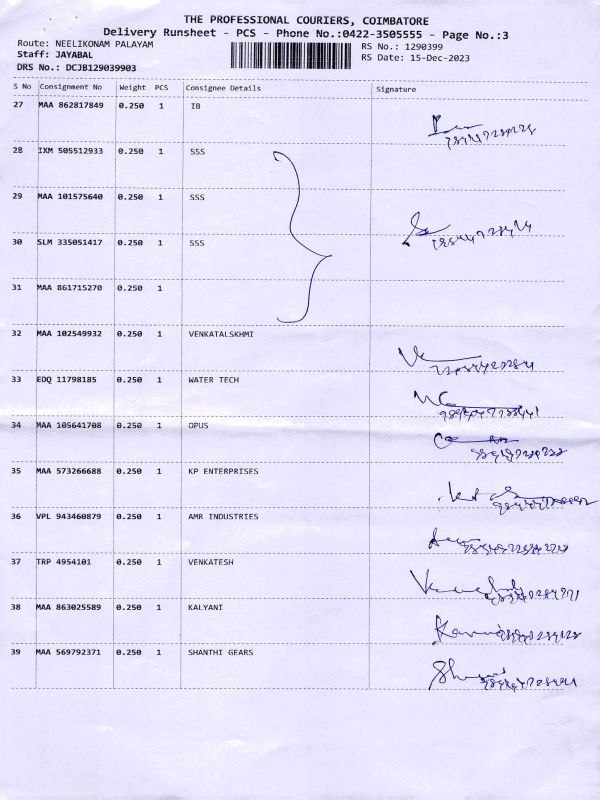 THE PROFESSIONAL COURIERS, COIMBATORE
Delivery Runsheet - PCS - Phone No.:0422-3505555 - Page No.:3
Route: NEELIKONAM PALAYAM
Staff: JAYABAL
DRS No.: DCJB129039903
RS No.: 1290399
RS Date: 15-Dec-2023
S No Consignment No Weight PCS Consignee Details Signature
27 MAA 862817849 0.250 1 IB
28 IXM 505512933 0.250 1 SSS
29 MAA 101575640 0.250 1 SSS
30 SLM 335051417 0.250 1 SSS
31 MAA 861715270 0.250 1
32 MAA 102549932 0.250 1 VENKATALSKHMI
33 EDQ 11798185 0.250 1 WATER TECH
34 MAA 105641708 0.250 1 OPUS
35 MAA 573266688 0.250 1 KP ENTERPRISES
36 VPL 943460879 0.250 1 AMR INDUSTRIES
37 TRP 4954101 0.250 1 VENKATESH
38 MAA 863025589 0.250 1 KALYANI
39 MAA 569792371 0.250 1 SHANTHI GEARS